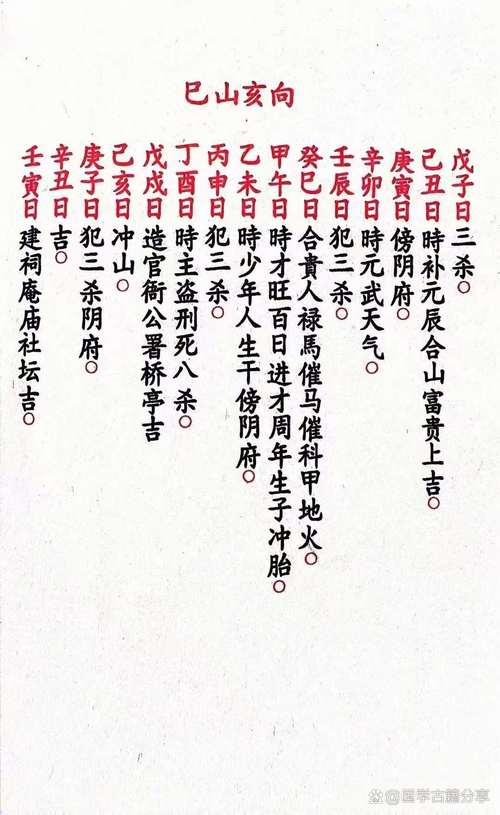 巳山亥向
戊子日三杀。
己丑日時补元辰合山富贵上吉。
庚寅日傍阴府。
辛卯日時元武天气。
壬辰日犯三杀。
癸巳日合貴人禄馬催马催科甲地火。
甲午日時才旺百日进才周年生子冲胎。
乙未日時少年人生干傍阴府。
丙申日犯三杀。
丁酉日時主盗刑死八杀。
戊戌日造官衙公署桥亭吉
己亥日冲山。
庚子日犯三杀阴府。
辛丑日吉。
壬寅日建祠庵庙社坛吉。
国学古籍分享